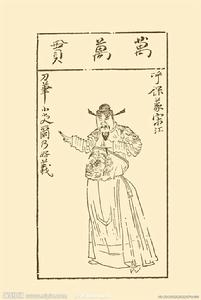 萬萬貫
呼保義宋江
刀筆小吏爾乃好義